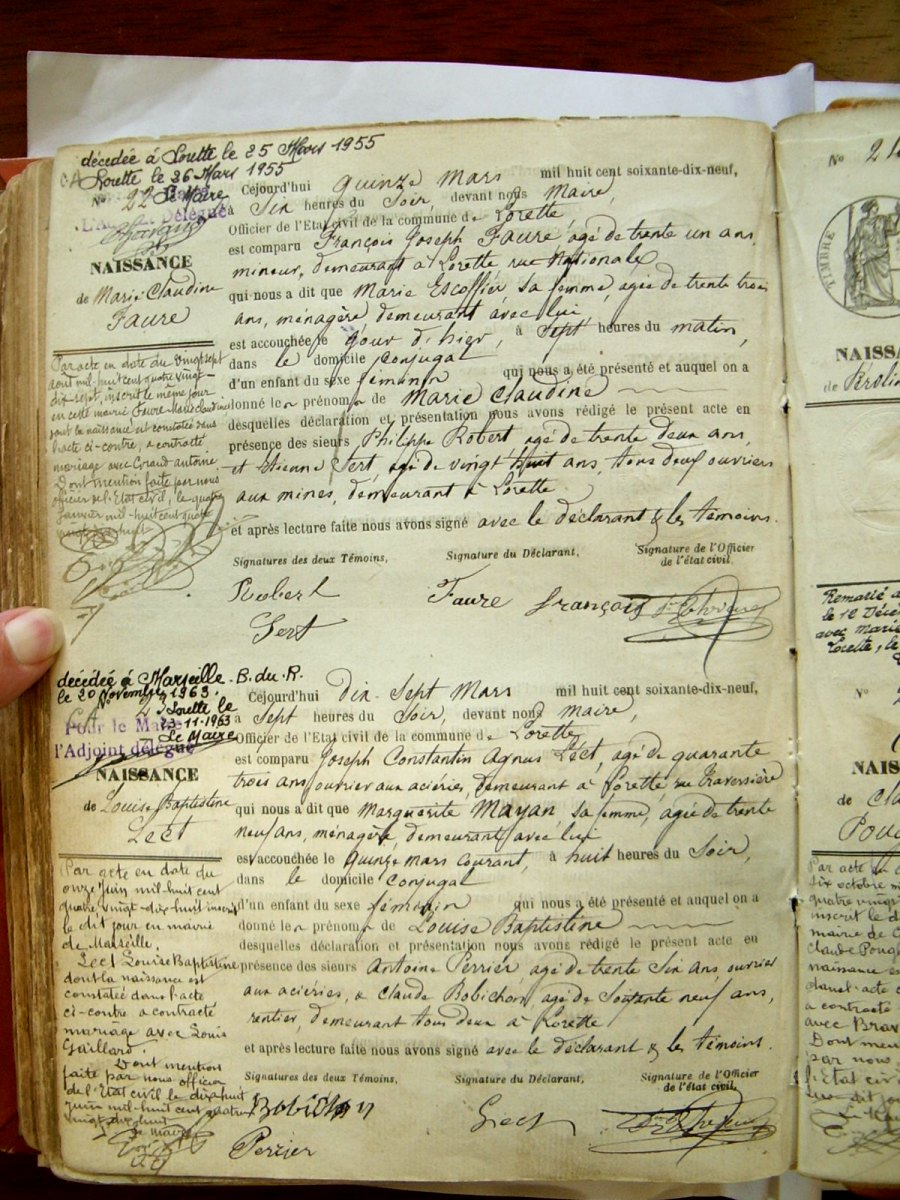 décédée à Lorette le 25 Mars 1955
Lorette le 26 Mars 1955
Le Maire
N° 22
L'Adjoint Délégué
NAISSANCE
de Marie Claudine
Faure
Par acte en date du vingt sept
août mil-huit cent quatre vingt-
dix-sept, inscrit le même jour
en cette mairie Faure Marie Claudine
dont la naissance est constatée dans
l'acte ci-contre, a contracté
mariage avec Giraud Antoine.
Dont mention faite par nous
officier de l'Etat civil, le quatre
Janvier mil-huit cent quatre
vingt dix huit
Cejourd'hui quinze Mars mil huit cent soixante-dix-neuf,
à Six heures du Soir, devant nous Maire,
Officier de l'Etat civil de la commune de Lorette
est comparu François Joseph Faure, agé de trente un ans,
mineur, demeurant à Lorette rue Nationale
qui nous a dit que Marie Escoffier sa femme, agée de trente trois
ans, ménagère demeurant avec lui,
est accouchée le jour d'hier, à Sept heures du matin,
dans le domicile conjugal
d'un enfant du sexe féminin qui nous a été présenté et auquel on a
donné le prénom de Marie Claudine
desquelles déclaration et présentation nous avons rédigé le présent acte en
présence des sieurs Philippe Robert agé de trente deux ans,
et Etienne Sert, agé de vingt huit ans, tous deux ouvriers
aux mines, demeurant à Lorette
et après lecture faite nous avons signé avec le déclarant & les témoins.
Signatures des deux Témoins, Signature du Déclarant, Signature de l'Officier
de l'état civil,
Robert Faure françois
Sert
décédée à Marseille - B. du R.
le 20 Novembre 1963.
N° 23 Lorette le
23-11-1963
Pour le Maire Le Maire
l'Adjoint délégué
NAISSANCE
de Louise Baptistine
Lect
Par acte en date du
onze Juin mil-huit cent
quatre vingt-dix-huit inscrit
le dit jour en mairie
de Marseille.
Lect Louise Baptistine
dont la naissance est
constatée dans l'acte
ci-contre a contracté
mariage avec Louis
Gaillard.
Dont mention
faite par nous officier
de l'Etat civil le dix huit
Juin mil-huit cent quatre
vingt dix huit
Le Maire
Cejourd'hui Dix Sept Mars mil huit cent soixante-dix-neuf,
à Sept heures du Soir, devant nous Maire,
Officier de l'Etat civil de la commune de Lorette
est comparu Joseph Constantin Agnus Lect, agé de quarante
trois ans, ouvrier aux aciéries, demeurant à Lorette, rue Traversière
qui nous a dit que Marguerite Mayan sa femme, agée de trente
neuf ans, ménagère, demeurant avec lui
est accouchée le quinze mars courant, à huit heures du Soir,
dans le domicile conjugal
d'un enfant du sexe féminin qui nous a été présenté et auquel on a
donné le prénom de Louise Baptistine
desquelles déclaration et présentation nous avons rédigé le présent acte en
présence des sieurs Antoine Perrier, agé de trente Six ans, ouvrier
aux aciéries, & Claude Bobichon, agé de Soixante neuf ans,
rentier, demeurant tous deux à Lorette
et après lecture faite nous avons signé avec le déclarant & les témoins.
Signatures des deux Témoins, Signature du Déclarant, Signature de l'Officier
de l'état civil,
Bobichon Lect
Perrier
N° 2
TIMBRE
NAISSA
de
Remarié à
le 12 Déce
avec Marie
Lorette, le
N°
NAIS
de Cla
Par acte en
dix octobre
quatre vingt
inscrit le d
mairie de
Claude Poug
naissance es
dans l'acte c
a contracté
avec
Dont men
par nous
l'Etat civi